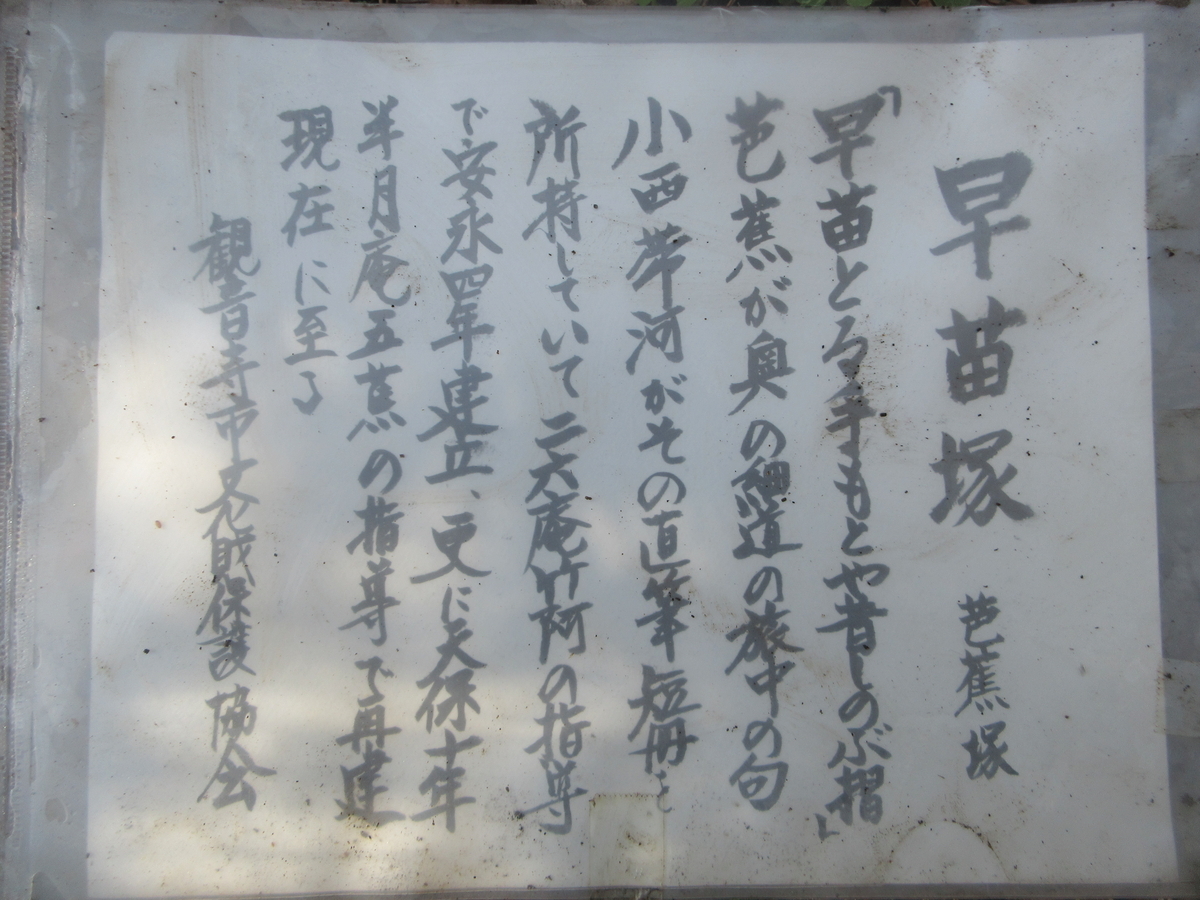 早苗塚 芭蕉塚
「早苗とる手もとや昔しのぶ摺」
芭蕉が奥の細道の旅中の句
小西帯河がその直筆短冊を
所持していて二六庵竹阿の指導
で安永四年建立、更に天保十年
半月庵五蕉の指導で再建
現在に至る
観音寺市文化財保護協会